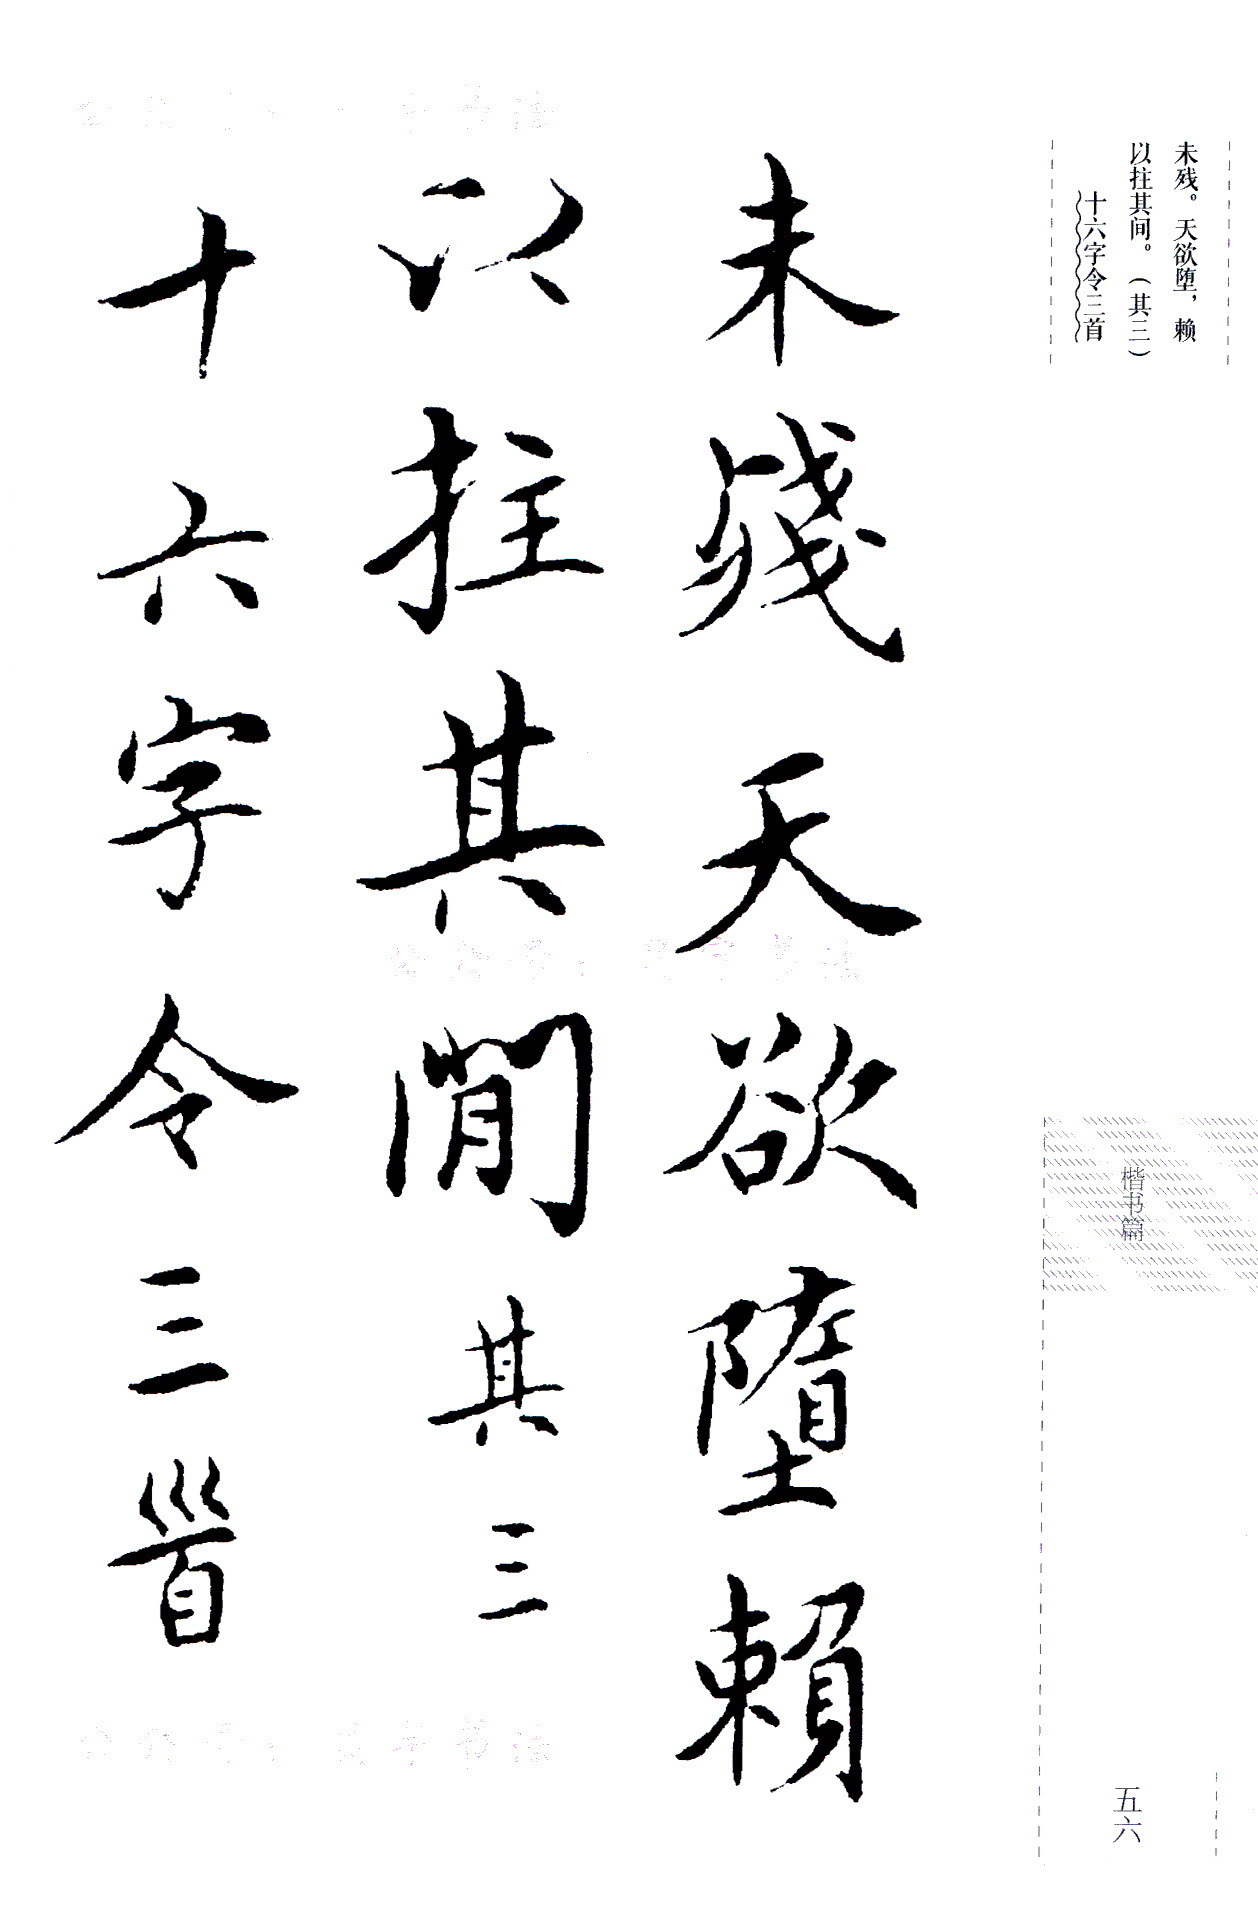 未残。天欲堕，赖
以拄其间。（其三）
十六字令三首
未殘天欲墮賴
以拄其閒其三
十六字令三首
楷书篇
五六